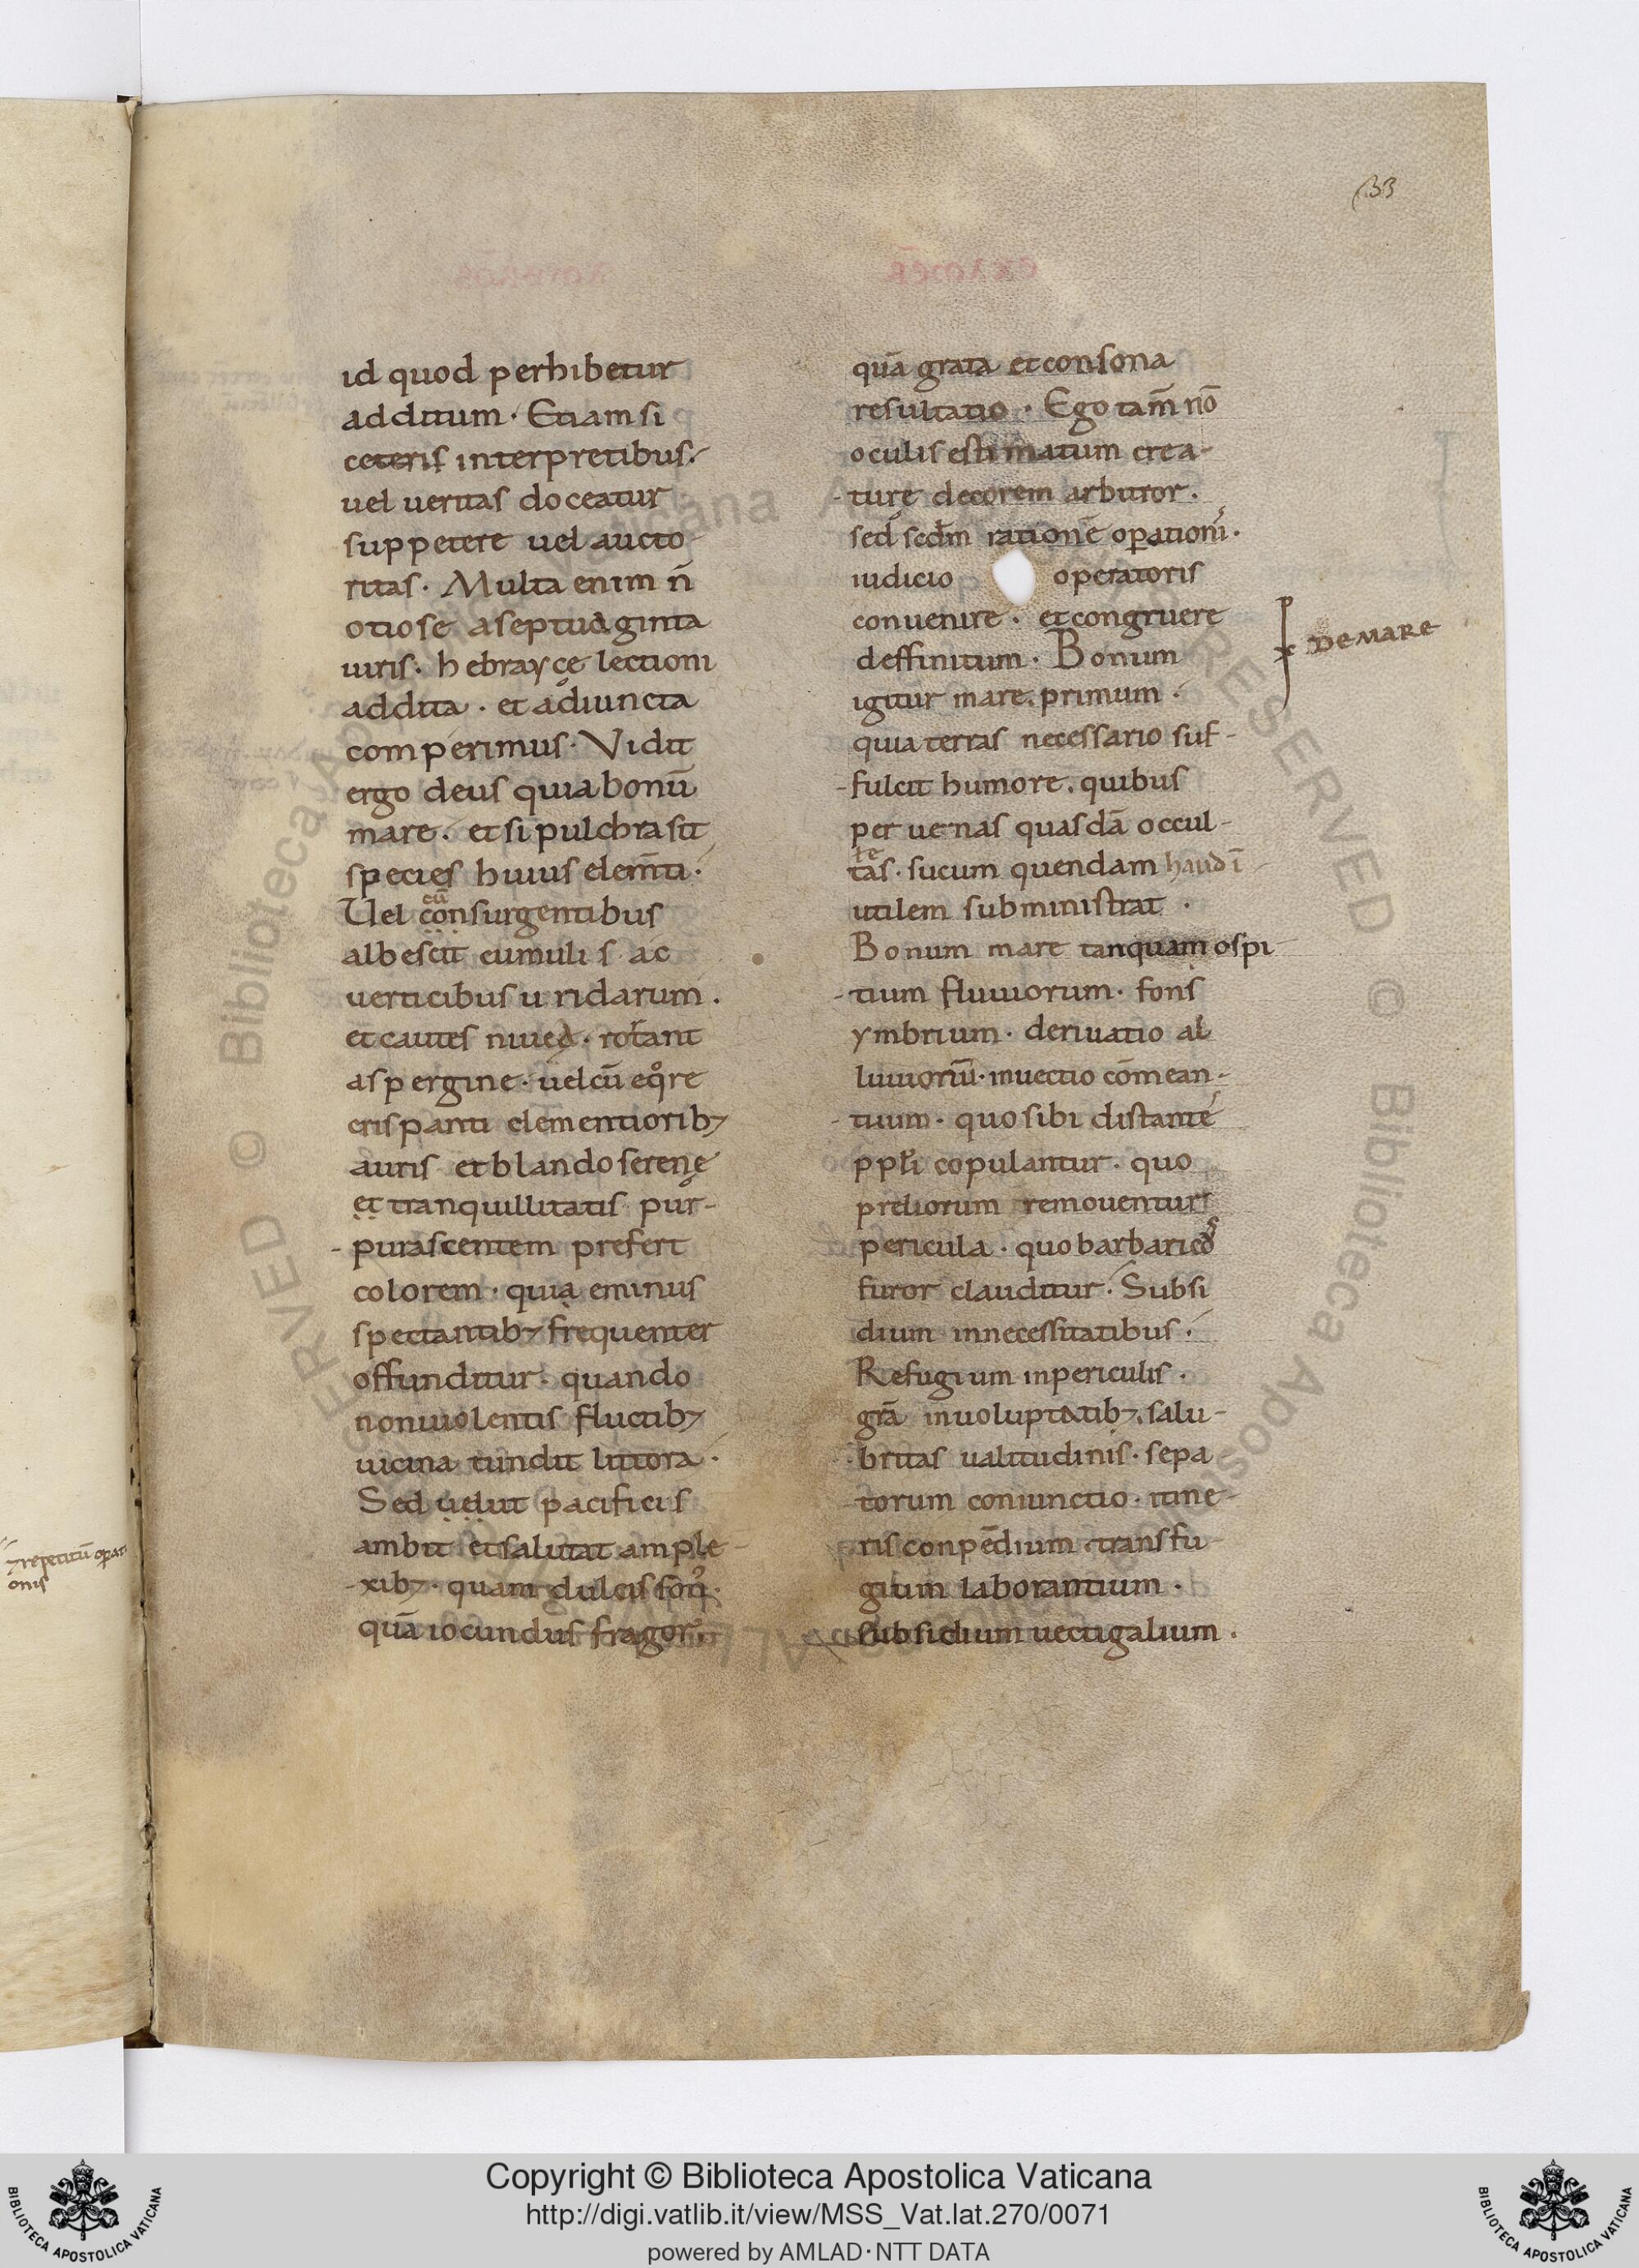 133
id quod perhibetur
additum · Etiam si
ceteris interpretibus·
uel ueritas doceatur
suppetere uel aucto
ritas · Multa enim n̄
otiose a septuaginta
uiris · hebrayce lectioni
addita · et adiuncta
comperimus · Vidit
ergo deus quia bonū
mare · et si pulchra sit
species huius elem̄ti ·
Uel consurgentibus
albescit cumulis ac
uerticibus undarum ·
et cautes niuea · rorant
aspergine · uel cū eq̊re
crispanti clementiorib;
auris et blando serenę
et tranquillitatis pur-
-purascentem prefert
colorem · quia eminus
spectantib; frequenter
offunditur · quando
non uiolentis fluctib;
uicina tundit littora ·
Sed uelut pacificis
ambit et salutat ample-
-xib; · quam dulcis son9 ·
quā iocundus fragor ·
quā grata et consona
resultatio · Ego tam̄ nō
oculis estimatum crea-
-turę decorem arbitror ·
sed sed̄m rationē operationis ·
iudicio operatoris
conuenire · et congruere
deffinitum · Bonum
DE MARE
igitur mare · primum ·
quia terras necessario suf-
-fulcit humore · quibus
per uenas quasdā occul-
tas · sucum quendam haud ī
utilem subministrat ·
Bonum mare tanquam ospi
-tium fluuiorum · fons
ymbrium · deriuatio al
luuioriū · inuectio cōmean-
-tium · quo sibi distante
ppli copulantur · quo
preliorum remouentur
pericula · quo barbaricus
furor clauditur · Subsi
dium in necessitatibus ·
Refugium in periculis ·
grā in uoluptatib; · salu-
-britas ualitudinis · sepa
torum coniunctio · itine-
ris conpēdium · transfu-
gium laborantium ·
subsidium uectigalium ·
7 repetitū operati
onis
Copyright © Biblioteca Apostolica Vaticana
http://digi.vatlib.it/view/MSS_Vat.lat.270/0071
powered by AMLAD · NTT DATA
BIBLIOTECA APOSTOLICA VATICANA
BIBLIOTECA APOSTOLICA VATICANA